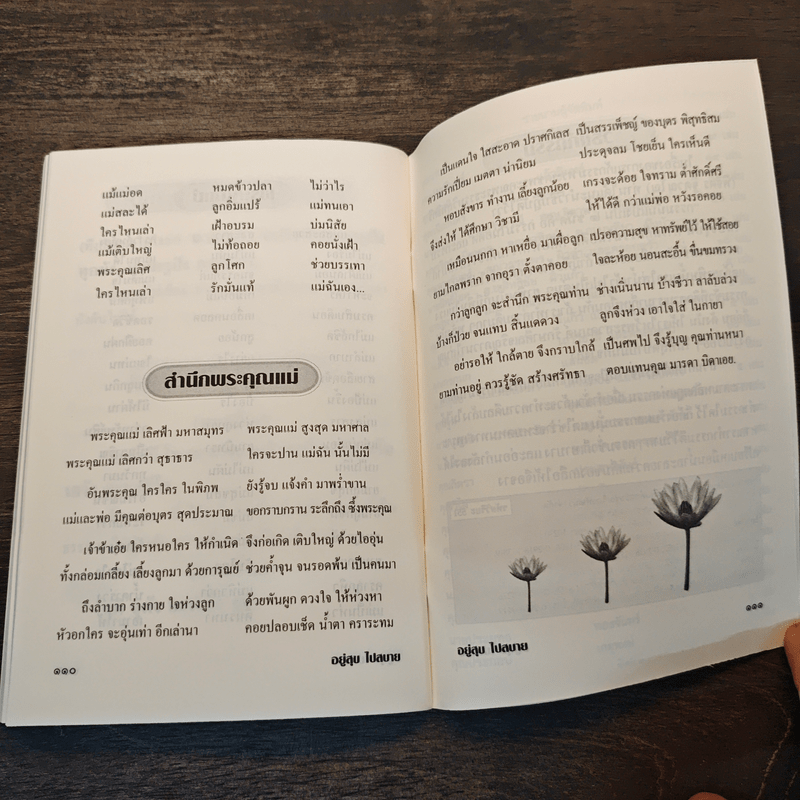 แม้แม่อด หมดข้าวปลา ไม่ว่าไร
แม่สละได้ ลูกอิ่มแปร้ แม่ทนเอา
ใครไหนเล่า เฝ้าอบรม บ่มนิสัย
แม้เติบใหญ่ ไม่ท้อถอย คอยนั่งเฝ้า
พระคุณเลิศ ลูกโศก ช่วยบรรเทา
ใครไหนเล่า รักมั่นแท้ แม่ฉันเอง...
สำนึกพระคุณแม่
พระคุณแม่ เลิศฟ้า มหาสมุทร พระคุณแม่ สูงสุด มหาศาล
พระคุณแม่ เลิศกว่า สุธาธาร ใครจะปาน แม่ฉัน นั้นไม่มี
อันพระคุณ ใครใคร ในพิภพ ยังรู้จบ แจ้งคำ มาพร่ำขาน
แม่และพ่อ มีคุณต่อบุตร สุดประมาณ ขอกราบกราน ระลึกถึง ซึ้งพระคุณ
เจ้าข้าเอ๋ย ใครหนอใคร ให้กำเนิด จึงก่อเกิด เติบใหญ่ ด้วยไออุ่น
ทั้งกล่อมเกลี้ยง เลี้ยงลูกมา ด้วยการุณย์ ช่วยค้ำจุน จนรอดพ้น เป็นคนมา
ถึงลำบาก ร่างกาย ใจห่วงลูก ด้วยพันผูก ดวงใจ ให้ห่วงหา
หัวอกใคร จะอุ่นเท่า อีกเล่านา คอยปลอบเช็ด น้ำตา คราระทม
อยู่สุข ไปสบาย
๑๑๐
เป็นแดนใจ ใสสะอาด ปราศกิเลส เป็นสรรเพ็ชญ์ ของบุตร พิสุทธิสม
ความรักเปี่ยม เมตตา น่านิยม ประดุจลม โชยเย็น ใครเห็นดี
หอบสังขาร ทำงาน เลี้ยงลูกน้อย เกรงจะด้อย ใจทราม ต่ำศักดิ์ศรี
จึงส่งให้ ได้ศึกษา วิชามี ให้ได้ดี กว่าแม่พ่อ หวังรอคอย
เหมือนนกกา หาเหยื่อ มาเผื่อลูก เปรอความสุข หาทรัพย์ไว้ ให้ใช้สอย
ยามไกลพราก จากอุรา ตั้งตาคอย ใจละห้อย นอนสะอื้น ขื่นขมทรวง
กว่าลูกลูก จะสำนึก พระคุณท่าน ช่างเนิ่นนาน บ้างชีวา ลาลับล่วง
บ้างก็ป่วย จนแทบ สิ้นแดดวง ลูกจึงห่วง เอาใจใส่ ในกายา
อย่ารอให้ ใกล้ตาย จึงกราบไหว้ เป็นศพไป จึงรู้บุญ คุณท่านหนา
ยามท่านอยู่ ควรรู้ชัด สร้างศรัทธา ตอบแทนคุณ มารดา บิดาเอย.
อยู่สุข ไปสบาย
๑๑๑